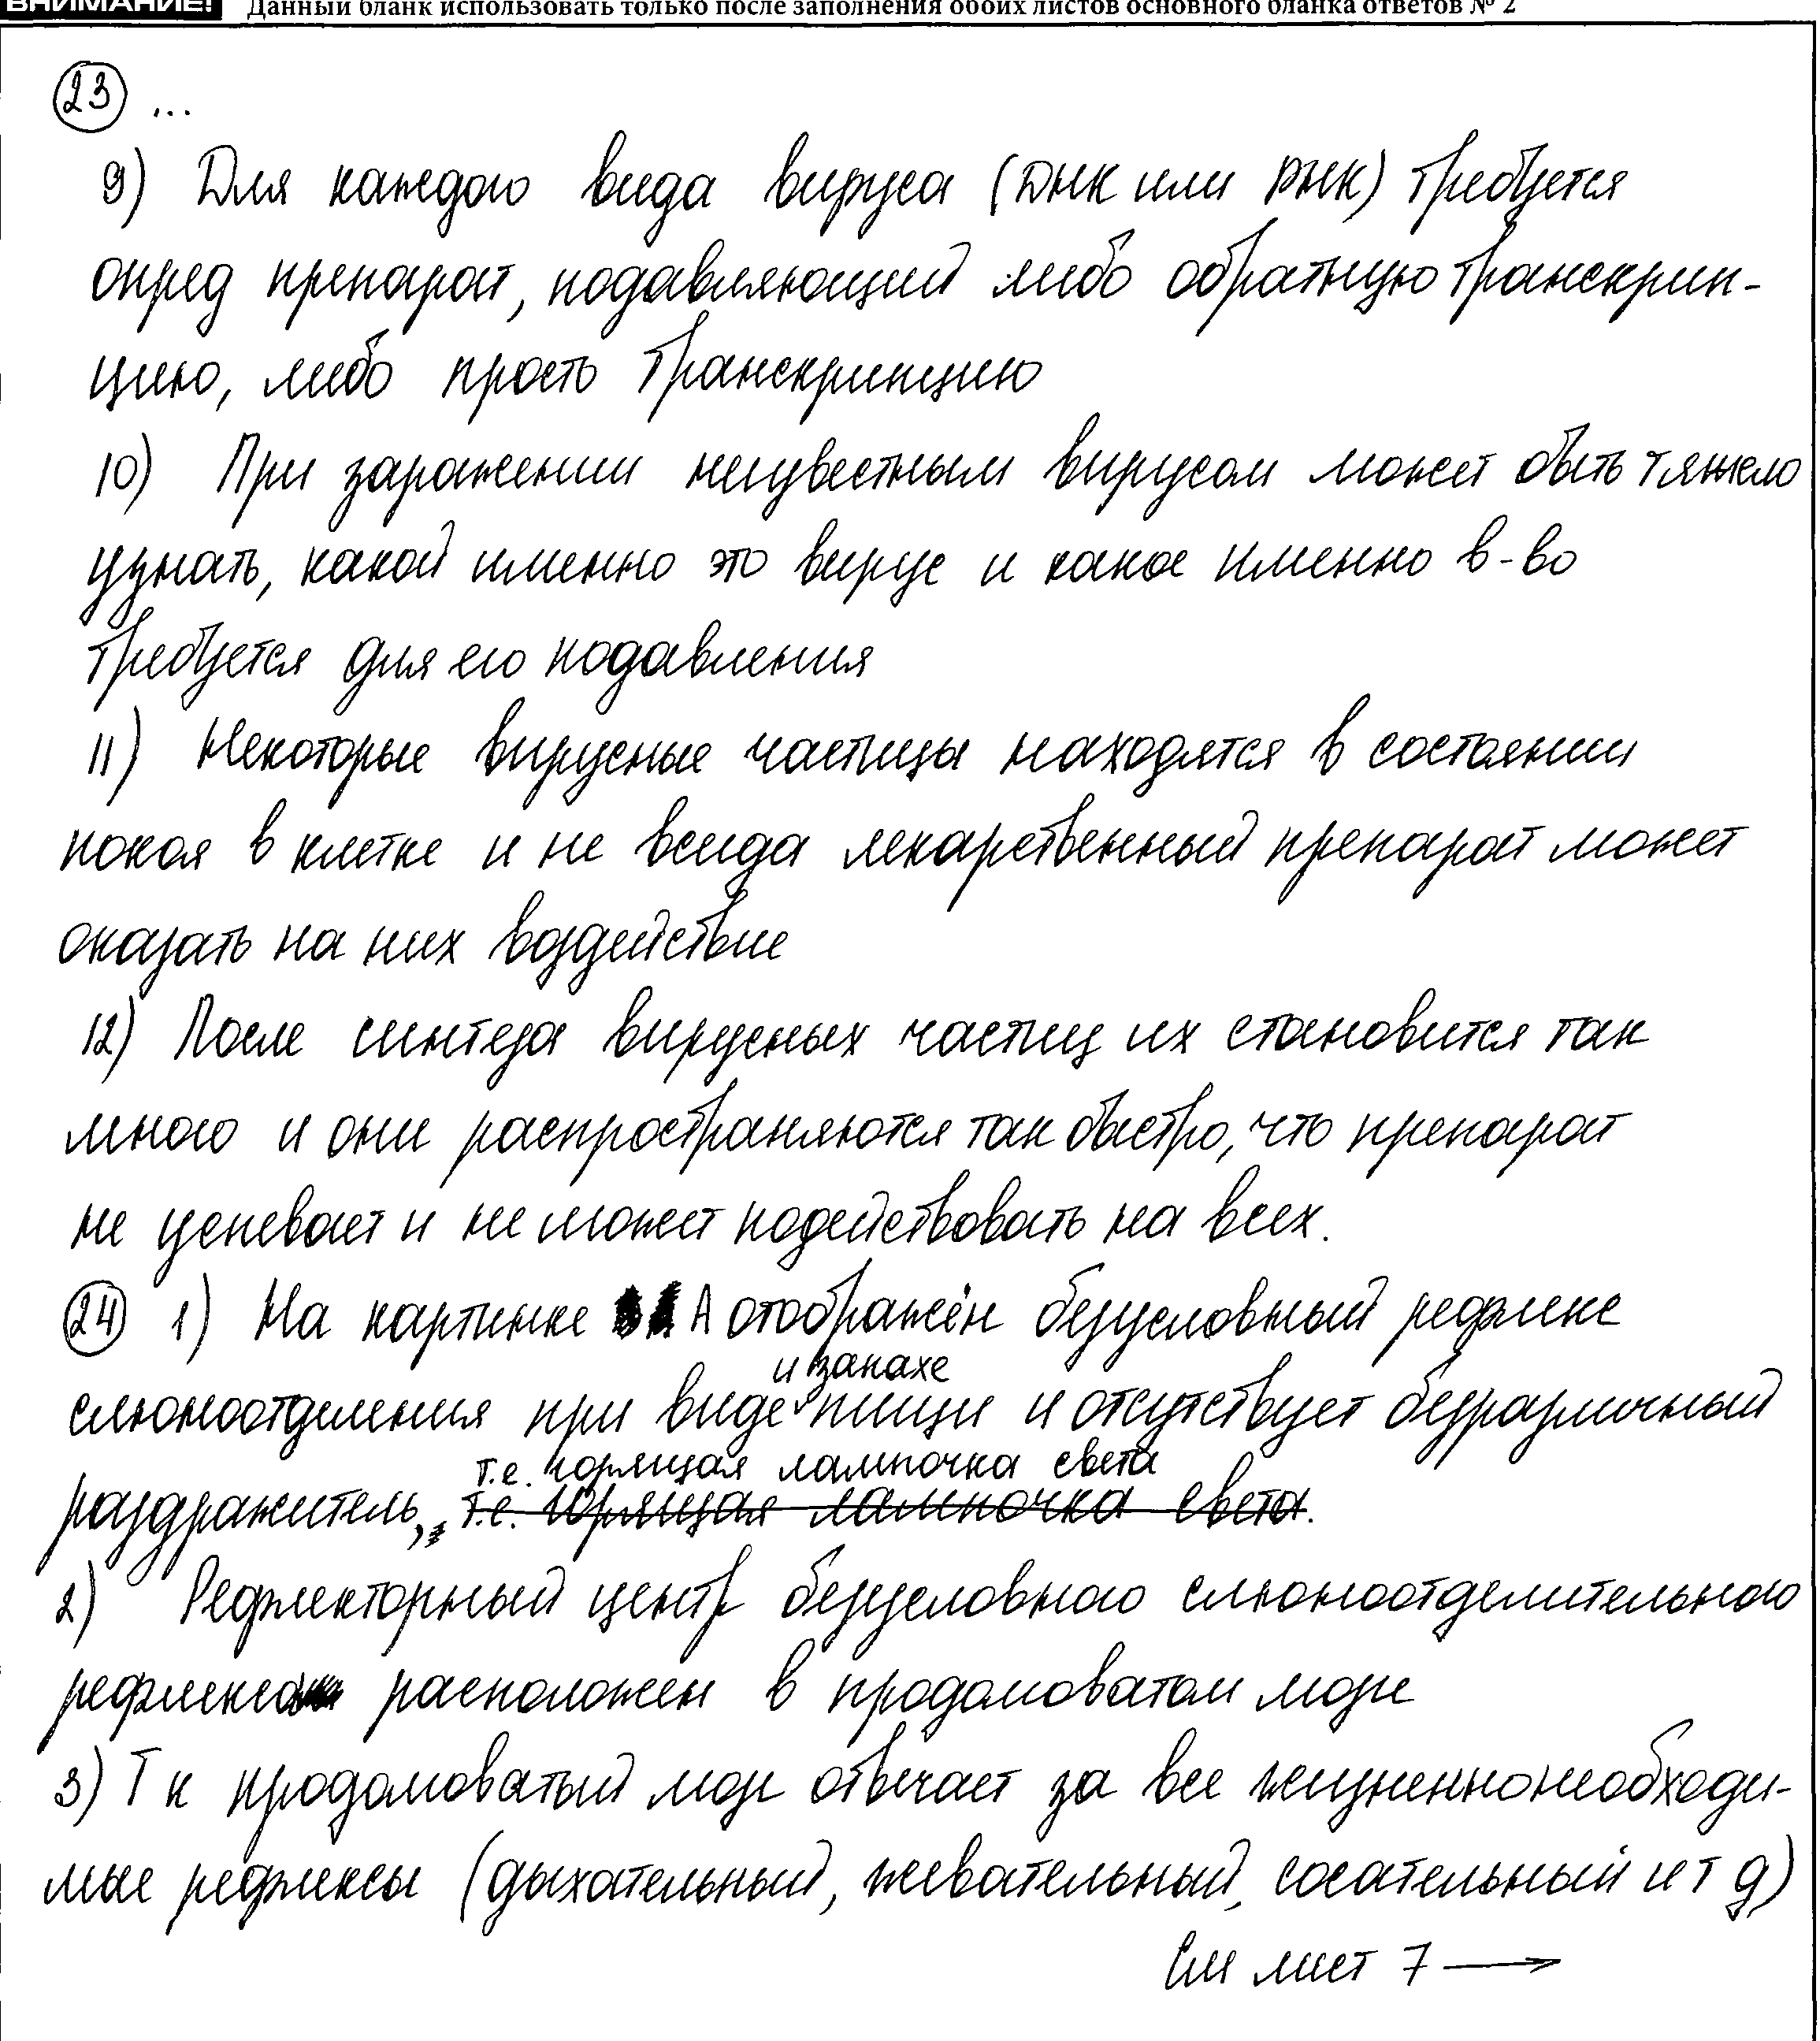 ВНИМАНИЕ! Данный бланк использовать только после заполнения обоих листов основного бланка ответов № 2
23 ...
9) Для каждого вида вируса (ДНК или РНК) требуется
опред препарат, подавляющий либо обратную транскрип-
цию, либо прость транскрипцию
10) При заражении неизвестным вирусом может быть тяжело
узнать, какой именно это вирус и какое именно в-во
требуется для его подавления
11) Некоторые вирусные частицы находятся в состоянии
покоя в клетке и не всегда лекарственный препарат может
оказать на них воздействие
12) После синтеза вирусных частиц их становится так
много и они распространяются так быстро, что препарат
не успевает и не может подействовать на всех.
24 1) На картинке А отображён безусловный рефлекс
и запахе
слюноотделения при виде пищи и отсутствует безразличный
т.е. горящая лампочка света
раздражитель, т.е. горящая лампочка света.
2) Рефлекторный центр безусловного слюноотделительного
рефлекса расположен в продолговатом мозге
3) Т к продолговатый мозг отвечает за все жизненнонеобходи-
мые рефлексы (дыхательный, жевательный, сосательный и т д)
См лист 7 →